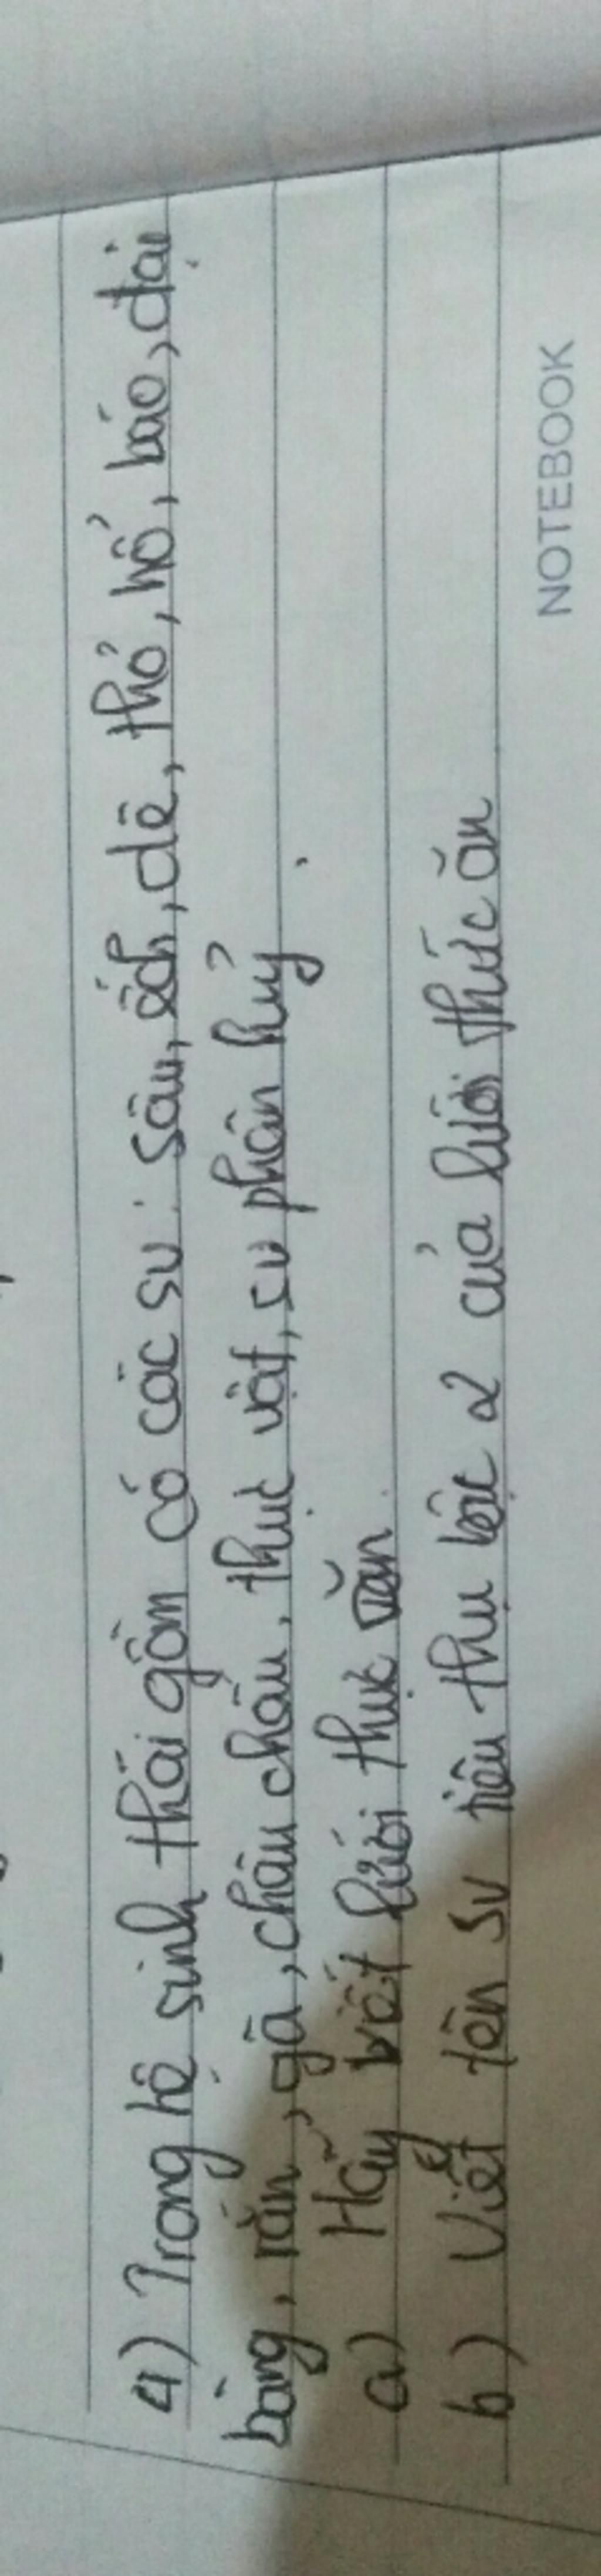 4) Trong hệ sinh thái gồm có các SV: sâu, ếch, dê, thỏ, hổ, báo, đại
bàng, rắn, gà, châu chấu, thực vật, sv phân huỷ.
a) Hãy viết lưới thực ăn
b) Viết tên SV tiêu thụ bậc 2 của lưới thức ăn
NOTEBOOK